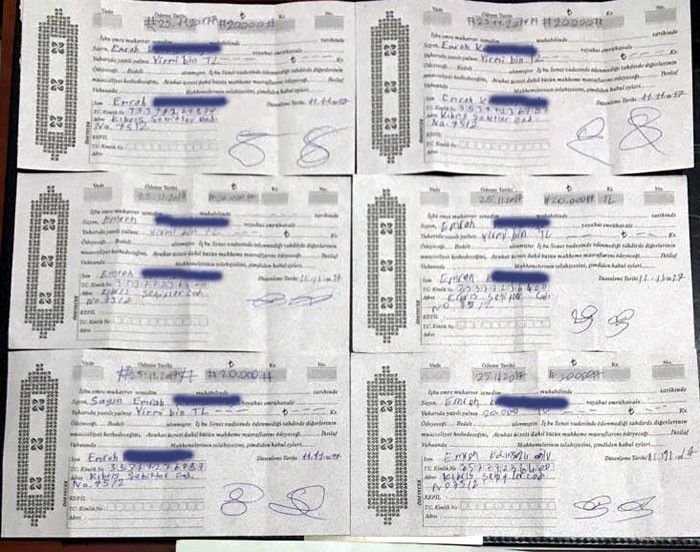 Vade Ödeme Tarihi ₺ Kr. No.
#25.11.2017# #20000#
İşbu emre muharrer senedim mukabilinde tarihinde
Sayın Emrah veyahut emrühavale
Yukarıda yazılı yalnız Yirmi bin TL ₺ Kr.
Ödeyeceği Bedeli alınmıştır. İş bu Senet vadesinde ödenmediği takdirde diğerlerinin
muacceliyet kesbedeceğini, Avukat ücreti dahil bütün mahkeme masraflarını ödeyeceği. İhtilaf
Vukuunda Mahkemelerinin selahiyetini şimdiden kabul eyleri.
İsim Emrah Düzenleme Tarihi 11.11.17
T.C. Kimlik No
Adres Kıbrıs Sehitler Cad.
No.75/2
KEFİL
T.C. Kimlik No
Adres
Vade Ödeme Tarihi ₺ Kr. No.
#20000#
İşbu emre muharrer senedim mukabilinde tarihinde
Sayın Emrah veyahut emrühavale
Yukarıda yazılı yalnız Yirmi bin TL ₺ Kr.
Ödeyeceği Bedeli alınmıştır. İş bu Senet vadesinde ödenmediği takdirde diğerlerinin
muacceliyet kesbedeceğini, Avukat ücreti dahil bütün mahkeme masraflarını ödeyeceği. İhtilaf
Vukuunda Mahkemelerinin selahiyetini şimdiden kabul eyleri.
İsim Emrah Düzenleme Tarihi 11.11.17
T.C. Kimlik No
Adres Kıbrıs Sehitler Cad.
No 75/2
KEFİL
T.C. Kimlik No
Adres
Vade Ödeme Tarihi ₺ Kr. No.
25.11.2017 #20.000#
İşbu emre muharrer senedim mukabilinde tarihinde
Sayın Emrah veyahut emrühavale
Yukarıda yazılı yalnız Yirmi bin TL ₺ Kr.
Ödeyeceği Bedeli alınmıştır. İş bu Senet vadesinde ödenmediği takdirde diğerlerinin
muacceliyet kesbedeceğini, Avukat ücreti dahil bütün mahkeme masraflarını ödeyeceği. İhtilaf
Vukuunda Mahkemelerinin selahiyetini şimdiden kabul eyleri.
İsim Emrah Düzenleme Tarihi
T.C. Kimlik No
Adres Sehitler Cad.
No 75/2
KEFİL
T.C. Kimlik No
Adres
Vade Ödeme Tarihi ₺ Kr. No.
25.11.2017 #20.000# TL
İşbu emre muharrer senedim mukabilinde tarihinde
Sayın Emrah veyahut emrühavale
Yukarıda yazılı yalnız Yirmi bin TL ₺ Kr.
Ödeyeceği Bedeli alınmıştır. İş bu Senet vadesinde ödenmediği takdirde diğerlerinin
muacceliyet kesbedeceğini, Avukat ücreti dahil bütün mahkeme masraflarını ödeyeceği. İhtilaf
Vukuunda Mahkemelerinin selahiyetini şimdiden kabul eyleri.
İsim Emrah Düzenleme Tarihi
T.C. Kimlik No
Adres Sehitler Cad.
No 75/2
KEFİL
T.C. Kimlik No
Adres
Vade Ödeme Tarihi ₺ Kr. No.
#25.11.2017# #20.000#
İşbu emre muharrer senedim mukabilinde tarihinde
Sayın Sayın Emrah veyahut emrühavale
Yukarıda yazılı yalnız Yirmi bin TL ₺ Kr.
Ödeyeceği Bedeli alınmıştır. İş bu Senet vadesinde ödenmediği takdirde diğerlerinin
muacceliyet kesbedeceğini, Avukat ücreti dahil bütün mahkeme masraflarını ödeyeceği. İhtilaf
Vukuunda Mahkemelerinin selahiyetini şimdiden kabul eyleri.
İsim Emrah Düzenleme Tarihi 11.11.17
T.C. Kimlik No
Adres Kıbrıs Sehitler Cad.
No.75/2
KEFİL
T.C. Kimlik No
Adres
Vade Ödeme Tarihi ₺ Kr. No.
25.11.2017
İşbu emre muharrer senedim mukabilinde tarihinde
Sayın Emrah veyahut emrühavale
Yukarıda yazılı yalnız 20.000 TL ₺ Kr.
Ödeyeceği Bedeli alınmıştır. İş bu Senet vadesinde ödenmediği takdirde diğerlerinin
muacceliyet kesbedeceğini, Avukat ücreti dahil bütün mahkeme masraflarını ödeyeceği. İhtilaf
Vukuunda Mahkemelerinin selahiyetini şimdiden kabul eyleri.
İsim Emrah Düzenleme Tarihi
T.C. Kimlik No
Adres Kıbrıs Cad
No 75/2
KEFİL
T.C. Kimlik No
Adres